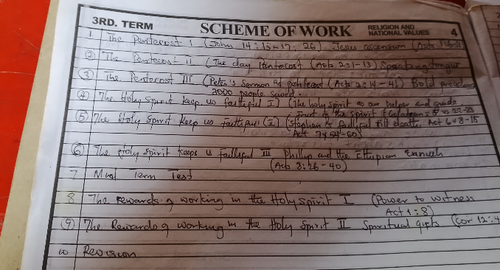 3RD. TERM SCHEME OF WORK RELIGION AND NATIONAL VALUES 4
1 The Pentecost I (John 14:15-17, 26) Jesus ascension (Acts
2 The Pentecost II (The day Pentecost (Acts 2:1-13) Speaking
3 The Pentecost III (Peter's Sermon at pentecost (Acts 2:14-41) Bold
3000 people saved
4 The Holy Spirit keep us faithful I) (The holy spirit as our helper and guide
fruit to the spirit
5 The Holy Spirit keep us faithful (II) (Stephen faithful till death. Act 6:8-15
Act 7:54-60)
6 The Holy Spirit keeps us faithful III Philip and the Ethiopian Eunuch
(Acts 8:26-40)
7 Mid Term Test
8 The rewards of working in the Holy Spirit I (Power to witness
Act 1:8)
9 The Rewards of working in the Holy Spirit II Spiritual gifts (Cor 12:4
10 Revision